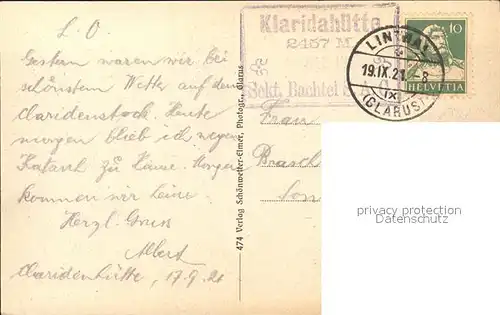 L. O
Gestern waren wir bei
schönstem Wetter auf dem
Claridenstock. Heute
morgen blieb ich wegen
Katarrh zu Hause. Morgen
kommen wir heim.
Herzl. Gruss
Albert
Claridenhütte 17.9.21
474 Verlag Schönwetter-Elmer, Photogr., Glarus
Klaridahütte
2457 M.
Sekt. Bachtel S.A.
LINTHAL
19.IX.21.-8
IX
(GLARUS)
10
HELVETIA
Frau
Brasch
privacy protection
Datenschutz